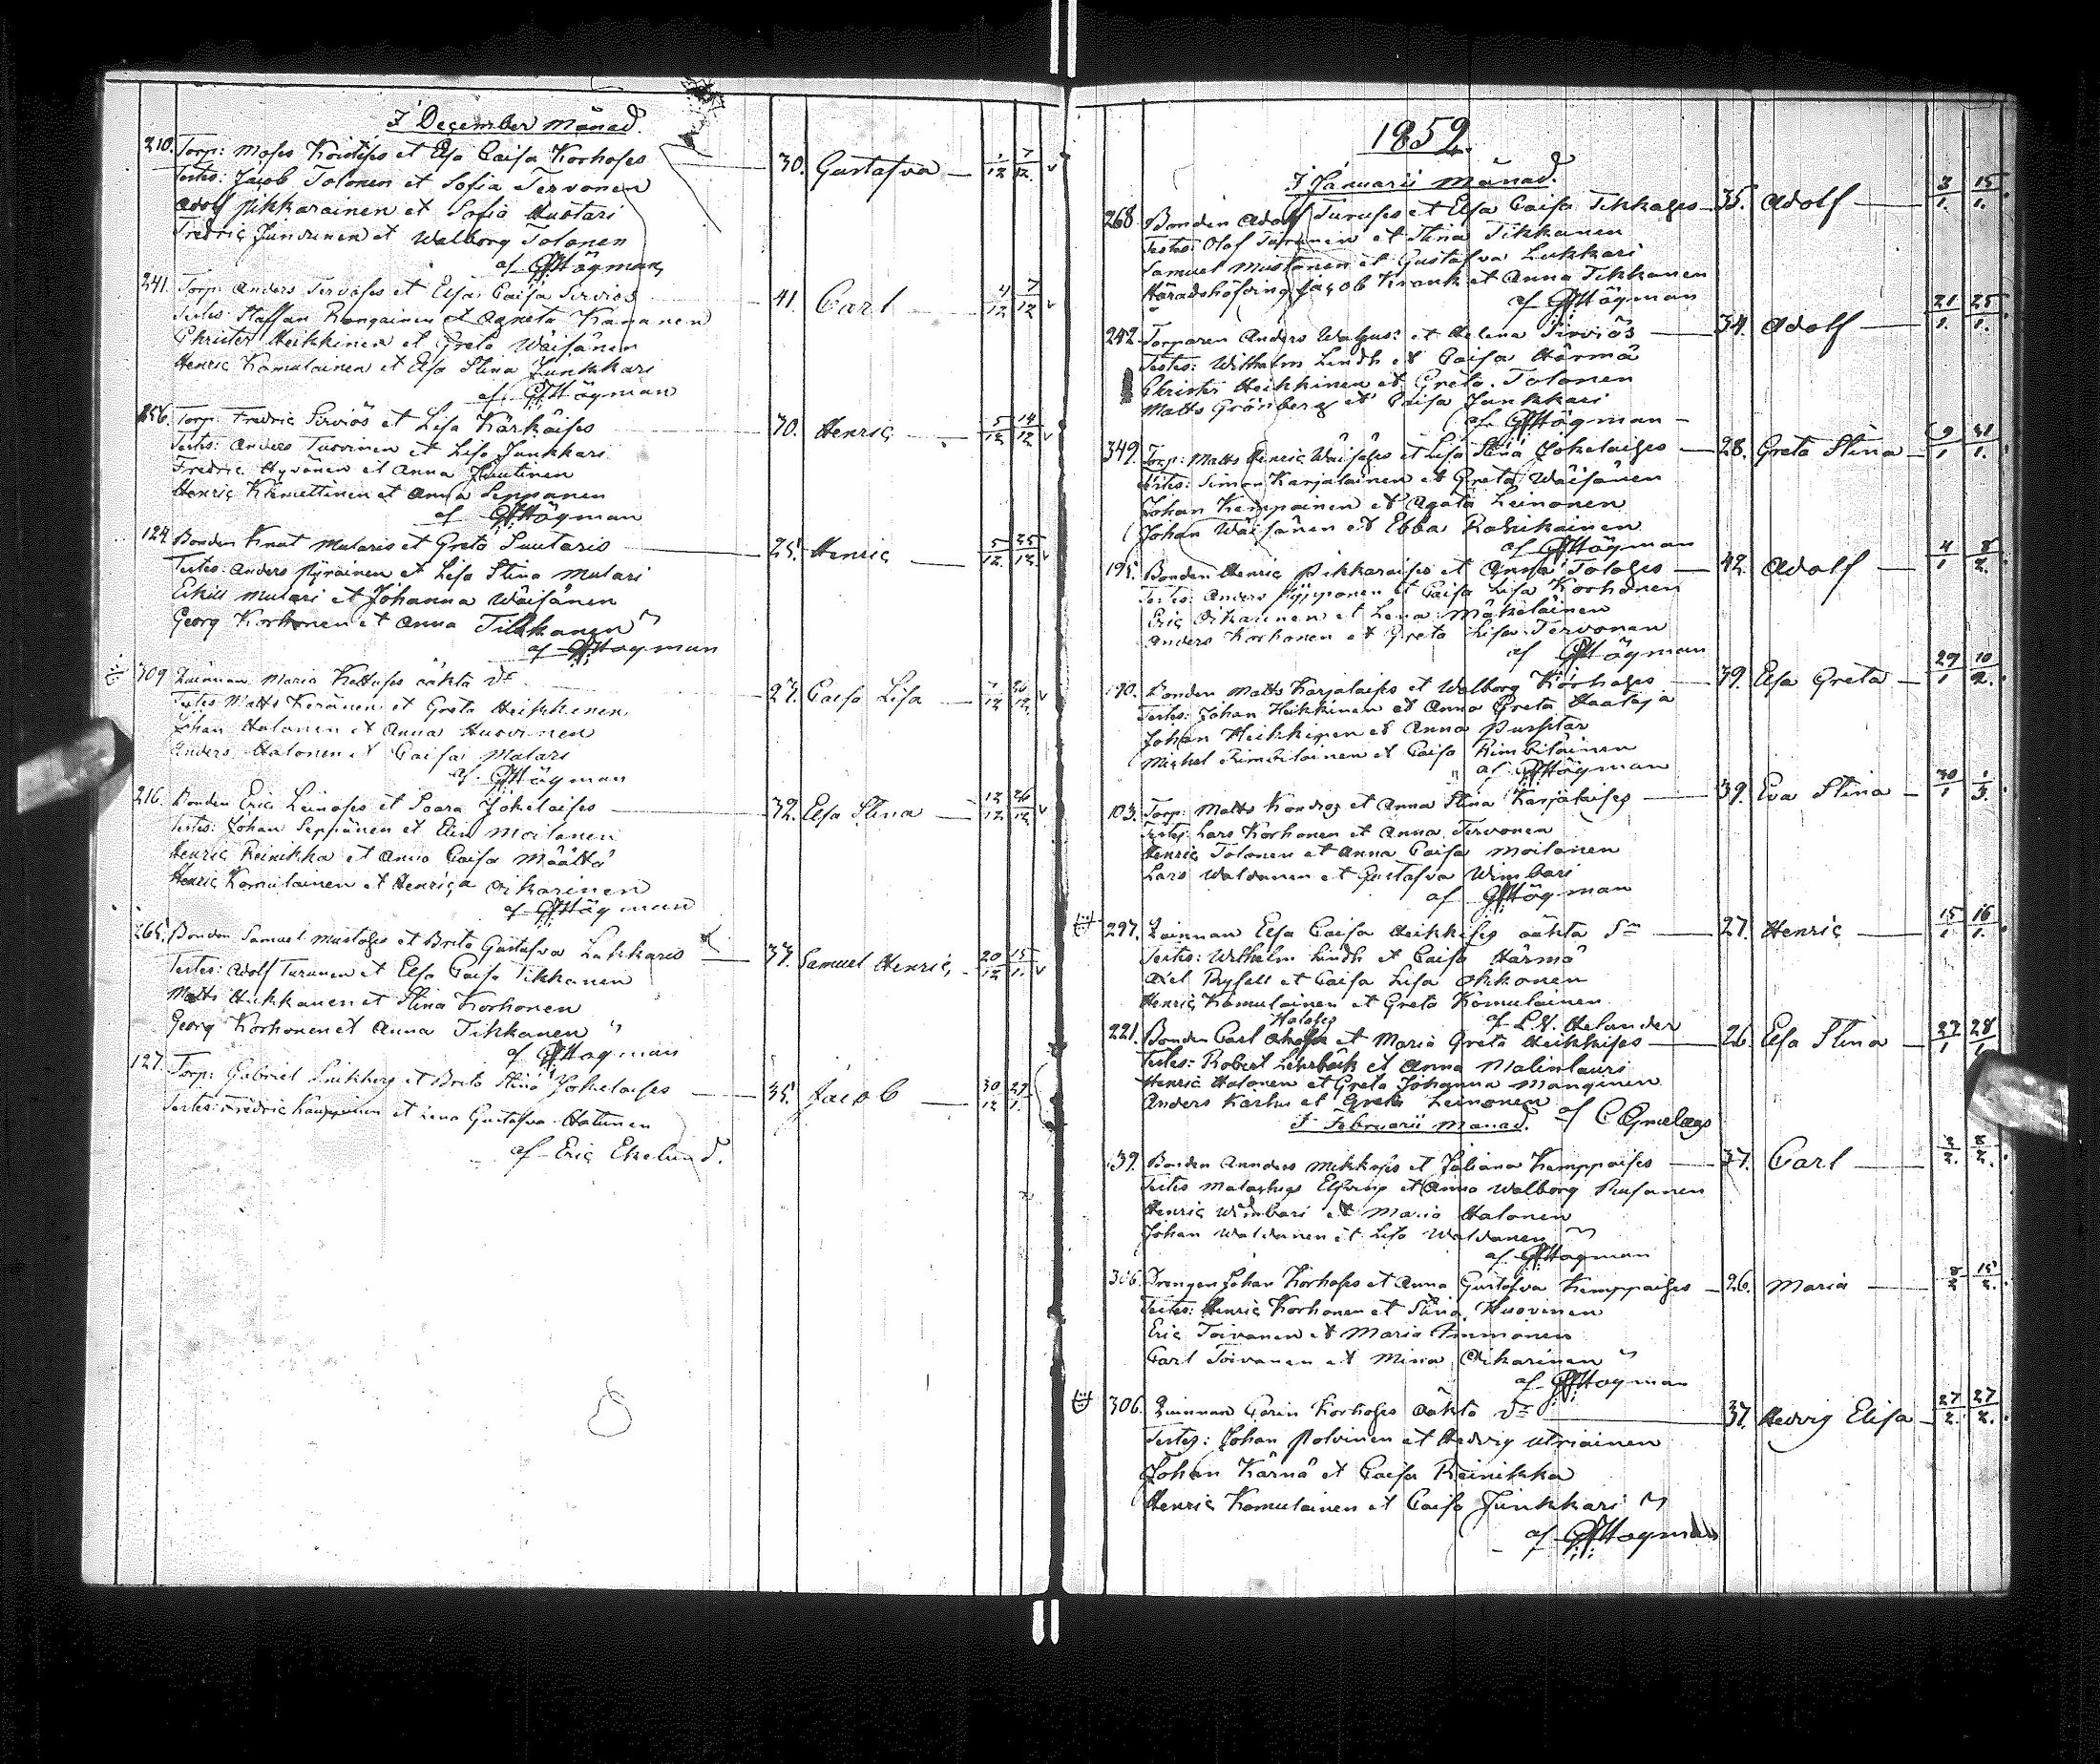 I December månad.
210. Torp: Moses Koistises et Elsa Caisa Korhoses 30. Gustafva 1/12 7/12
Testes: Jacob Tolonen et Sofia Tervonen
Adolf Pikkarainen et Sofia Mustari
Fredric Junnunen et Walborg Tolonen
af GHögman
241. Torp: Anders Tervoses et Elsa Caisa Serviös 41. Carl 4/12 7/12
Testes: Staffan Rongainen et Agneta Kananen
Christer Heikkinen et Greta Wäisänen
Henric Kamulainen et Elsa Stina Junkkari
af GHögman
256. Torp: Fredric Serviös et Lisa Kärkäises 30. Henric 5/12 14/12
Testes: Anders Tuovinen et Lisa Junkkari
Fredric Hyvönen et Anna Juutinen
Henric Kämettinen et Anna Seppänen
af GHögman
124. Bonden Knut Mularis et Greta Suutaris 25. Henric 5/12 25/12
Testes: Anders Pyräinen et Lisa Stina Mulari
Eskill Mulari et Johanna Wäisänen
Georg Korhonen et Anna Tikkanen
af GHögman
309. Quinnan Maria äkta dr 27. Caisa Lisa
Testes Matts Keränen et Greta Heikkinen
Johan Halonen et Anna Huovinen
Anders Halonen et Caisa Mulari
af GHögman
216. Bonden Eric Leinoses et Saara Jokelaises 32. Elsa Stina 12/12 26/12
Testes: Johan Seppänen et Elin Moilanen
Henric Reinikka et Anna Caisa Määttä
Henric Komulainen et Henrica Oikarinen
af GHögman
265. Bonden Samuel Mustoses et Brita Gustafva Lukkaris 37. Samuel Henric 20/12 15/1
Testes: Adolf Turunen et Elsa Caisa Tikkanen
Matts Hukkanen et Stina Korhonen
Georg Korhonen et Anna Tikkanen
af GHögman
127. Torp: Gabriel et Brita Stina Jokelaises 35. Jacob 30/12 27/1
Testes: Fredric Kauppinen et Lena Gustafva Hatunen
af Eric Ekelund.
1852.
I Januarii månad.
268. Bonden Adolf Turuses et Elsa Caisa Tikkases 35. Adolf 3/1. 15/1.
Testes: Olof Turunen et Stina Tikkanen
Samuel Mustonen et Gustafva Lukkari
Häradshöfding Jacob et Anna Tikkanen
af GHögman
242. Torparen Anders et Helena Serviös 34. Adolf 21/1. 25/1.
Testes: Wilhelm Lindh et Caisa Härmä
Christer Heikkinen et Greta Tolonen
Matts Grönberg et Caisa Junkkari
af GHögman
349. Torp: Matts Henric Wäisäses et Lisa Stina Jokelaises 28. Greta Stina 9/1 31/1.
Testes: Simon Karjalainen et Greta Wäisänen
Johan Kemppainen et Agata Leinonen
Johan Wäisänen et Ebba Rahikainen
af GHögman
195. Bonden Henric Pikkaraises et Anna Toloses 42. Adolf 4/1 8/2.
Testes: Anders Pyypponen et Caisa Lisa Korhonen
Eric Oikarinen et Lena Mäkeläinen
Anders Korhonen et Greta Lisa Tervonen
af GHögman
190. Bonden Matts Karjalaises et Walborg Korhoses 39. Elsa Greta 29/1 10/2.
Testes: Johan Heikkinen et Anna Greta Haataja
Johan Heikkinen et Anna Pursstar
Michel Rimpiläinen et Caisa Rimpiläinen
af GHögman
103. Torp: Matts Kondros et Anna Stina Karjalaises 39. Eva Stina 30/1 1/3.
Testes: Lars Korhonen et Anna Tervonen
Henric Tolonen et Anna Caisa Moilanen
Lars Waldanen et Gustafva Wimbari
af GHögman
297. Quinnan Elsa Caisa Heikkises oäkta Sn 27. Henric 15/1 16/1.
Testes: Wilhelm Lindh et Caisa Härmä
Axel Ryfell et Caisa Lisa Okkonen
Henric Komulainen et Greta Komulainen
af L. H. Helander
Haloses
221. Bonden Carl et Maria Greta Heikkises 26. Elsa Stina 27/1 28/1
Testes: Robert Lehrbäck et Anna Malin Lauri
Henric Halonen et Greta Johanna Manginen
Anders Karhu et Greta Leinonen
af
I Februarii månad.
139. Bonden Annders Mikkoses et Juliana Kemppaises 37. Carl 2/2. 8/2.
Testes Malachias Elfving et Anna Walborg Rusanen
Henric Wimbari et Maria Halonen
Johan Waldanen et Lisa Waldanen
af GHögman
306. Drengen Johan Korhoses et Anna Gustafva Kemppaises 26. Maria 8/2 15/2.
Testes: Henric Korhonen et Stina Huovinen
Eric Toivanen et Maria Immonen
Carl Toivanen et Mina Oikarinen
af GHögman
306. Quinnan Carin Korhoses oäkta dr 37. Hedvig Elisa 27/2. 27/2.
Testes: Johan Polvinen et Hedvig Utriainen
Johan Kärnä et Caisa Reinikka
Henric Komulainen et Caisa Junkkari
af GHögman